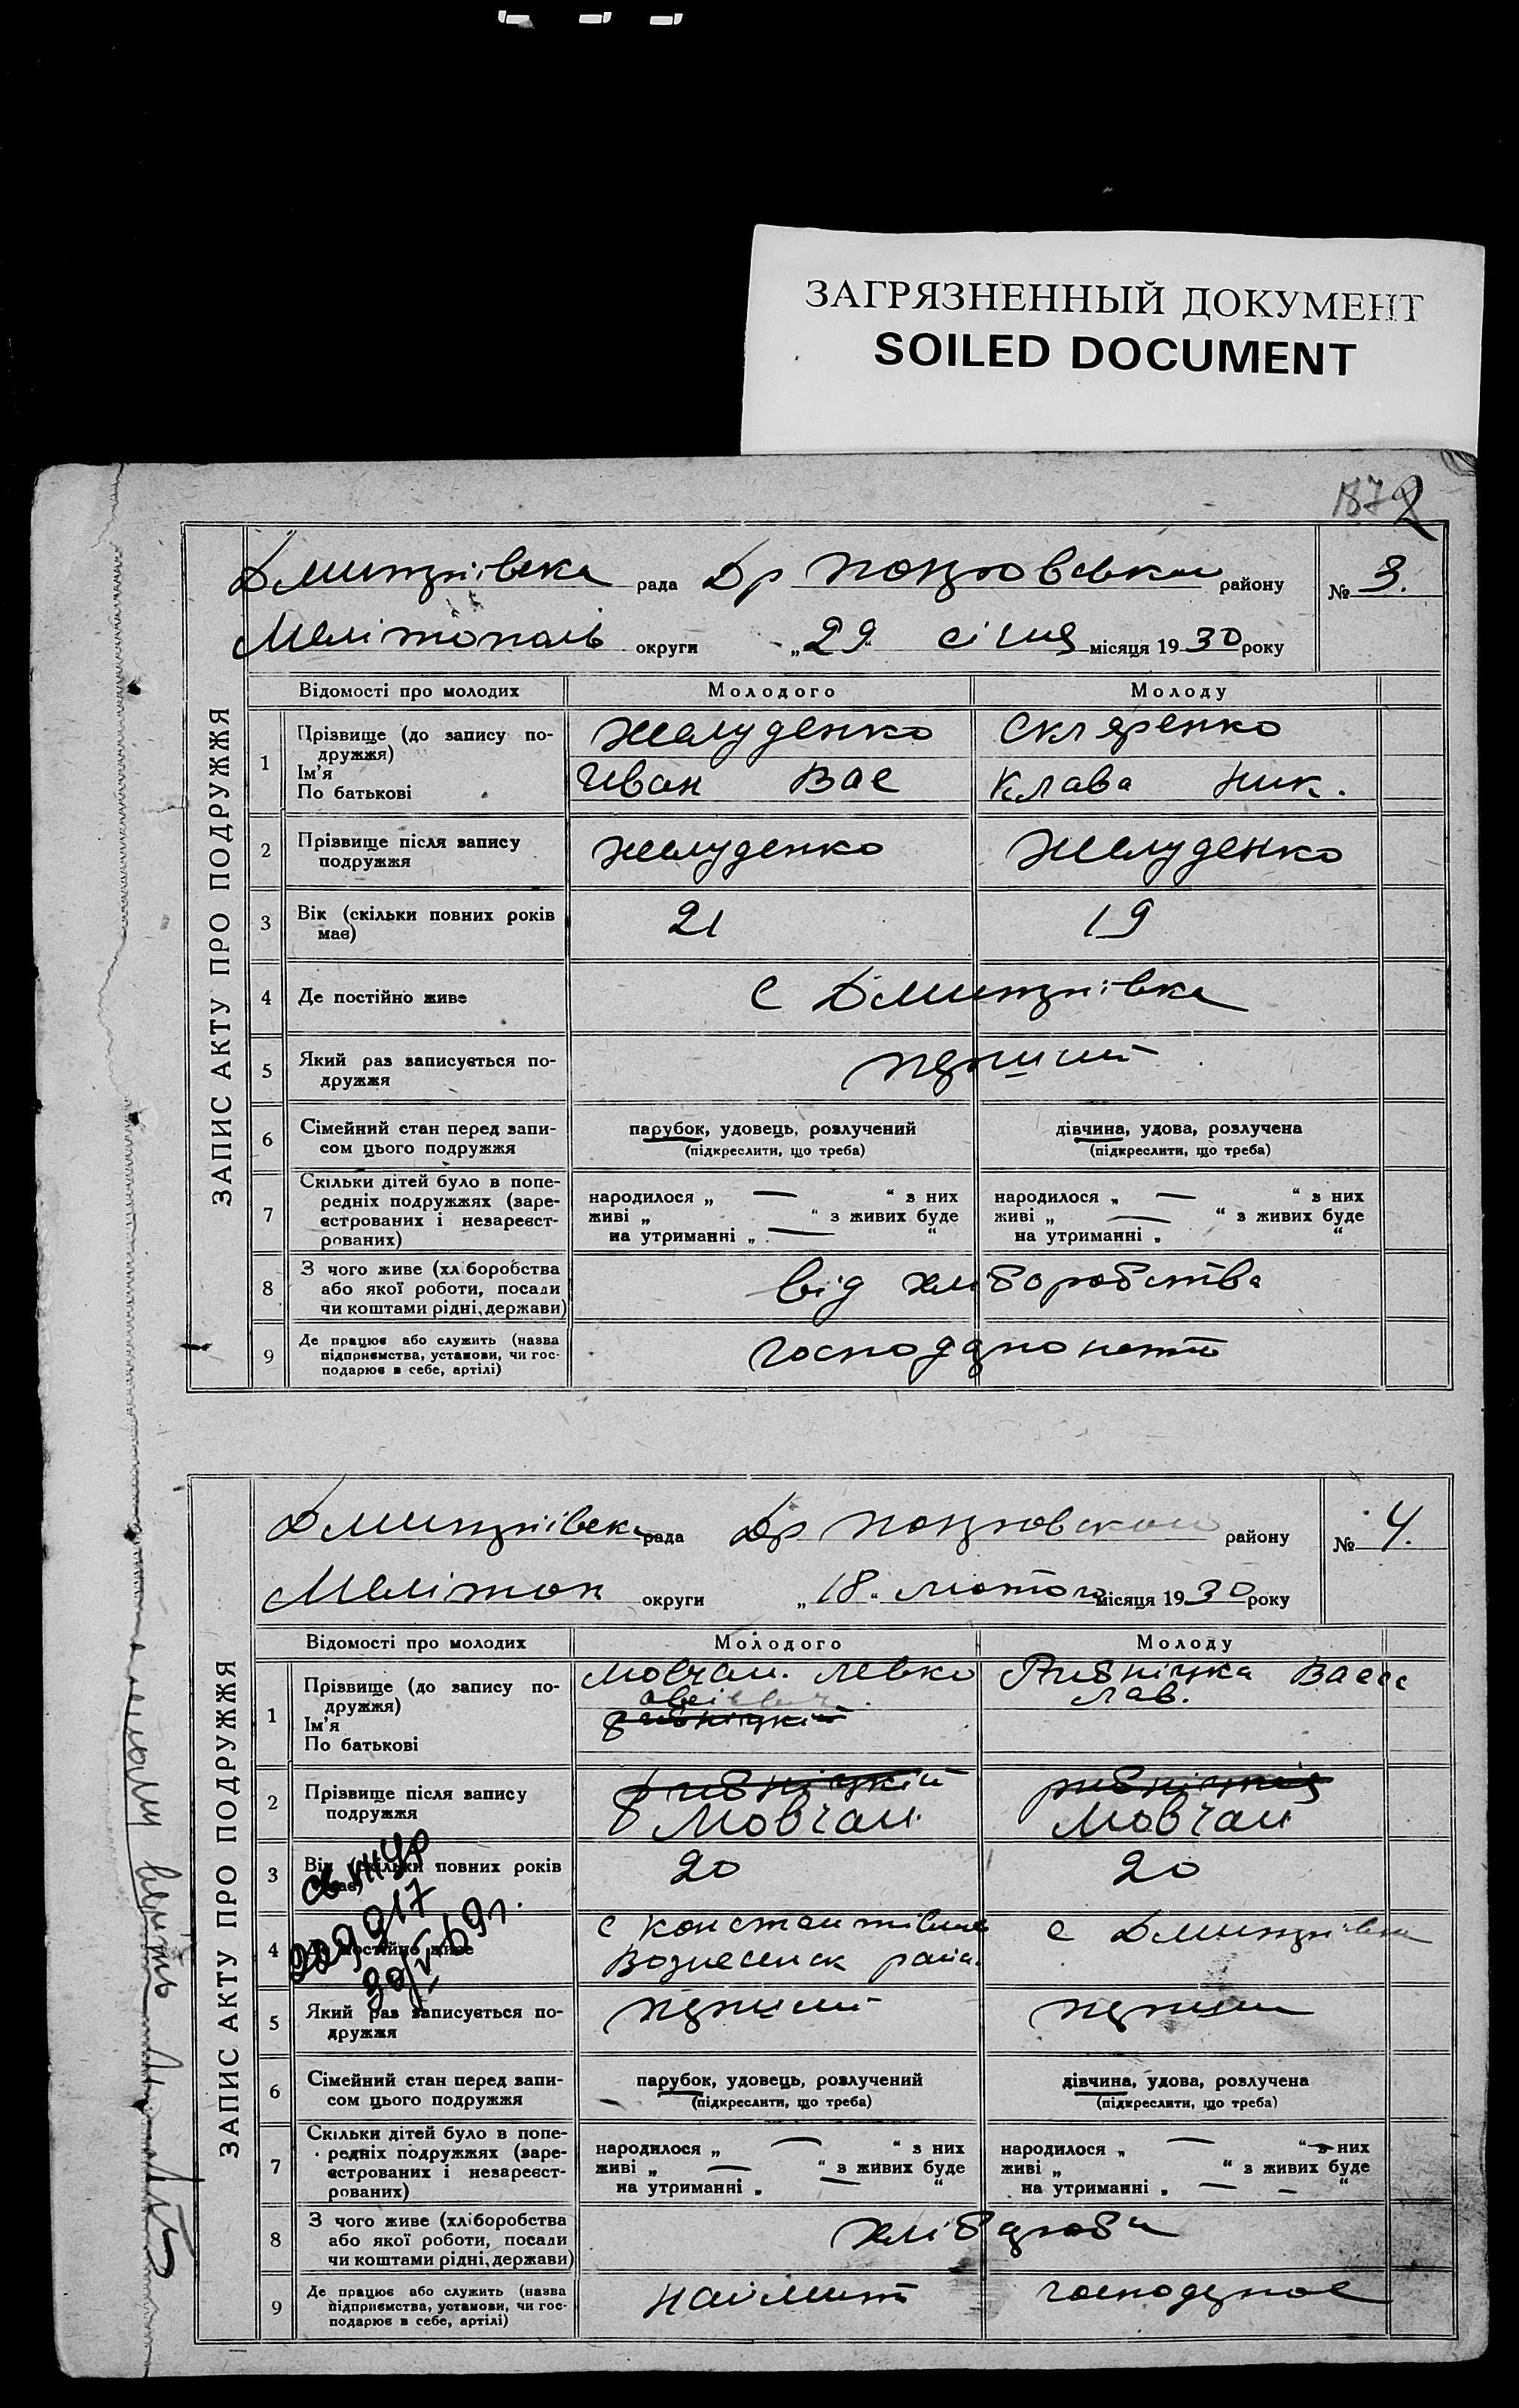 ЗАГРЯЗНЕННЫЙ ДОКУМЕНТ
SOILED DOCUMENT
187 2
ЗАПИС АКТУ ПРО ПОДРУЖЖЯ
Дмитрівська рада Др Покровськом району № 3.
Мелітополь округи „29“ січня місяця 1930 року
Відомості про молодих Молодого Молоду
1 Прізвище (до запису по-
дружжя)
Ім'я
По батькові
Желуденко Скляренко
Иван Вас Клава Ник.
2 Прізвище після запису
подружжя
Желуденко Желуденко
3 Вік (скільки повних років
має)
21 19
4 Де постійно живе с Дмитрівка
5 Який раз записується по-
дружжя
перший
6 Сімейний стан перед запи-
сом цього подружжя
парубок, удовець, розлучений дівчина, удова, розлучена
(підкреслити, що треба) (підкреслити, що треба)
7 Скільки дітей було в попе-
редніх подружжях (заре-
єстрованих і незареєст-
рованих)
народилося „ — “ з них народилося „ — “ з них
живі „ “ з живих буде живі „ — “ з живих буде
на утриманні „ — “ на утриманні „ “
8 З чого живе (хліборобства
або якої роботи, посади
чи коштами рідні, держави)
від хліборобства
9 Де працює або служить (назва
підприємства, установи, чи гос-
подарює в себе, артілі)
ЗАПИС АКТУ ПРО ПОДРУЖЖЯ
Дмитрівська рада Др Покровском району № 4.
Мелітоп округи „18“ лютого місяця 1930 року
Відомості про молодих Молодого Молоду
1 Прізвище (до запису по-
дружжя)
Ім'я
По батькові
Мовчан. Левко Рибніцка Васс
Лав.
2 Прізвище після запису
подружжя
Мовчан Мовчан
3 Вік (скільки повних років
має)
20 20
4 Де постійно живе
с Константівка с Дмитрівка
Вознесенск район.
5 Який раз записується по-
дружжя
перший перший
6 Сімейний стан перед запи-
сом цього подружжя
парубок, удовець, розлучений дівчина, удова, розлучена
(підкреслити, що треба) (підкреслити, що треба)
7 Скільки дітей було в попе-
редніх подружжях (заре-
єстрованих і незареєст-
рованих)
народилося „ — “ з них народилося „ — “ з них
живі „ — “ з живих буде живі „ “ з живих буде
на утриманні „ — “ на утриманні „ — “
8 З чого живе (хліборобства
або якої роботи, посади
чи коштами рідні, держави)
хлібороби
9 Де працює або служить (назва
підприємства, установи, чи гос-
подарює в себе, артілі)
наймит господарює